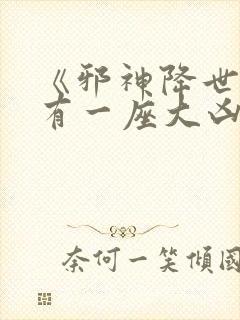 《邪神降世
有一座大凶
奈何一笑傾國